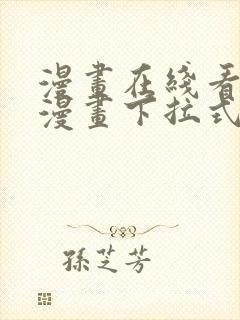 漫畫在綫看
漫畫下拉式
孫芝芳